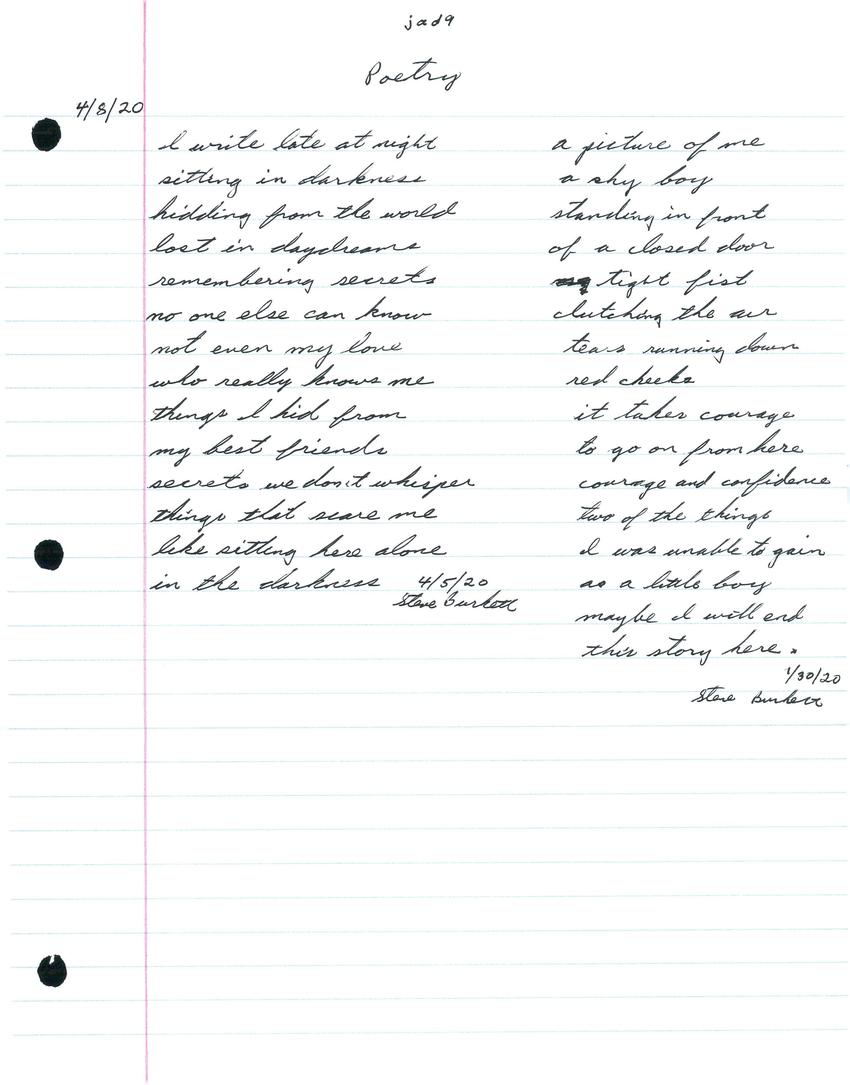 jad9
Poetry
4/8/20
I write late at night
sitting in darkness
hidding from the world
lost in daydreams
remembering secrets
no one else can know
not even my love
who really knows me
things I hid from
my best friends
secrets we don't whisper
things that scare me
like sitting here alone
in the darkness
4/5/20
Steve Burkett
a picture of me
a shy boy
standing in front
of a closed door
tight fist
clutching the air
tears running down
red cheeks
it takes courage
to go on from here
courage and confidence
two of the things
I was unable to gain
as a little boy
maybe I will end
this story here.
1/30/20
Steve Burkett